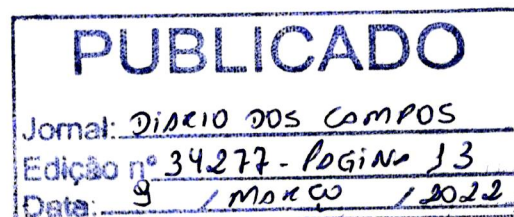 PUBLICADO
Jornal: DIÁRIO DOS CAMPOS
Edição nº 34277 - PÁGINA 13
Data: 9 / MARÇO / 2022